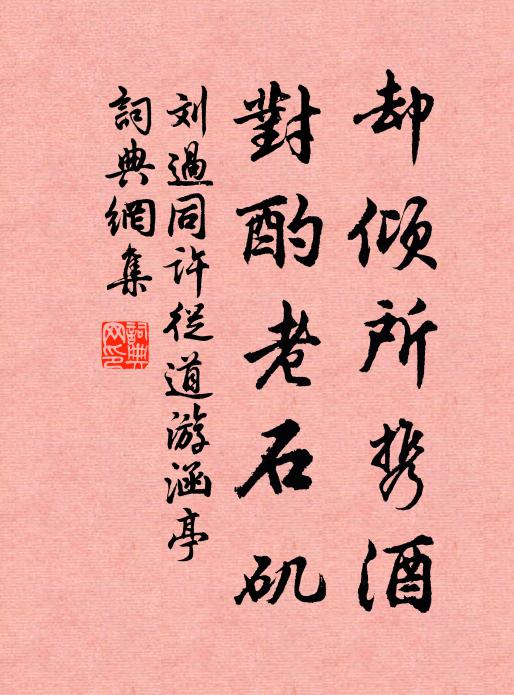 却倾所携酒
對酌老石矶
刘過同许從道游涵亭
詞典網集
詞典網印